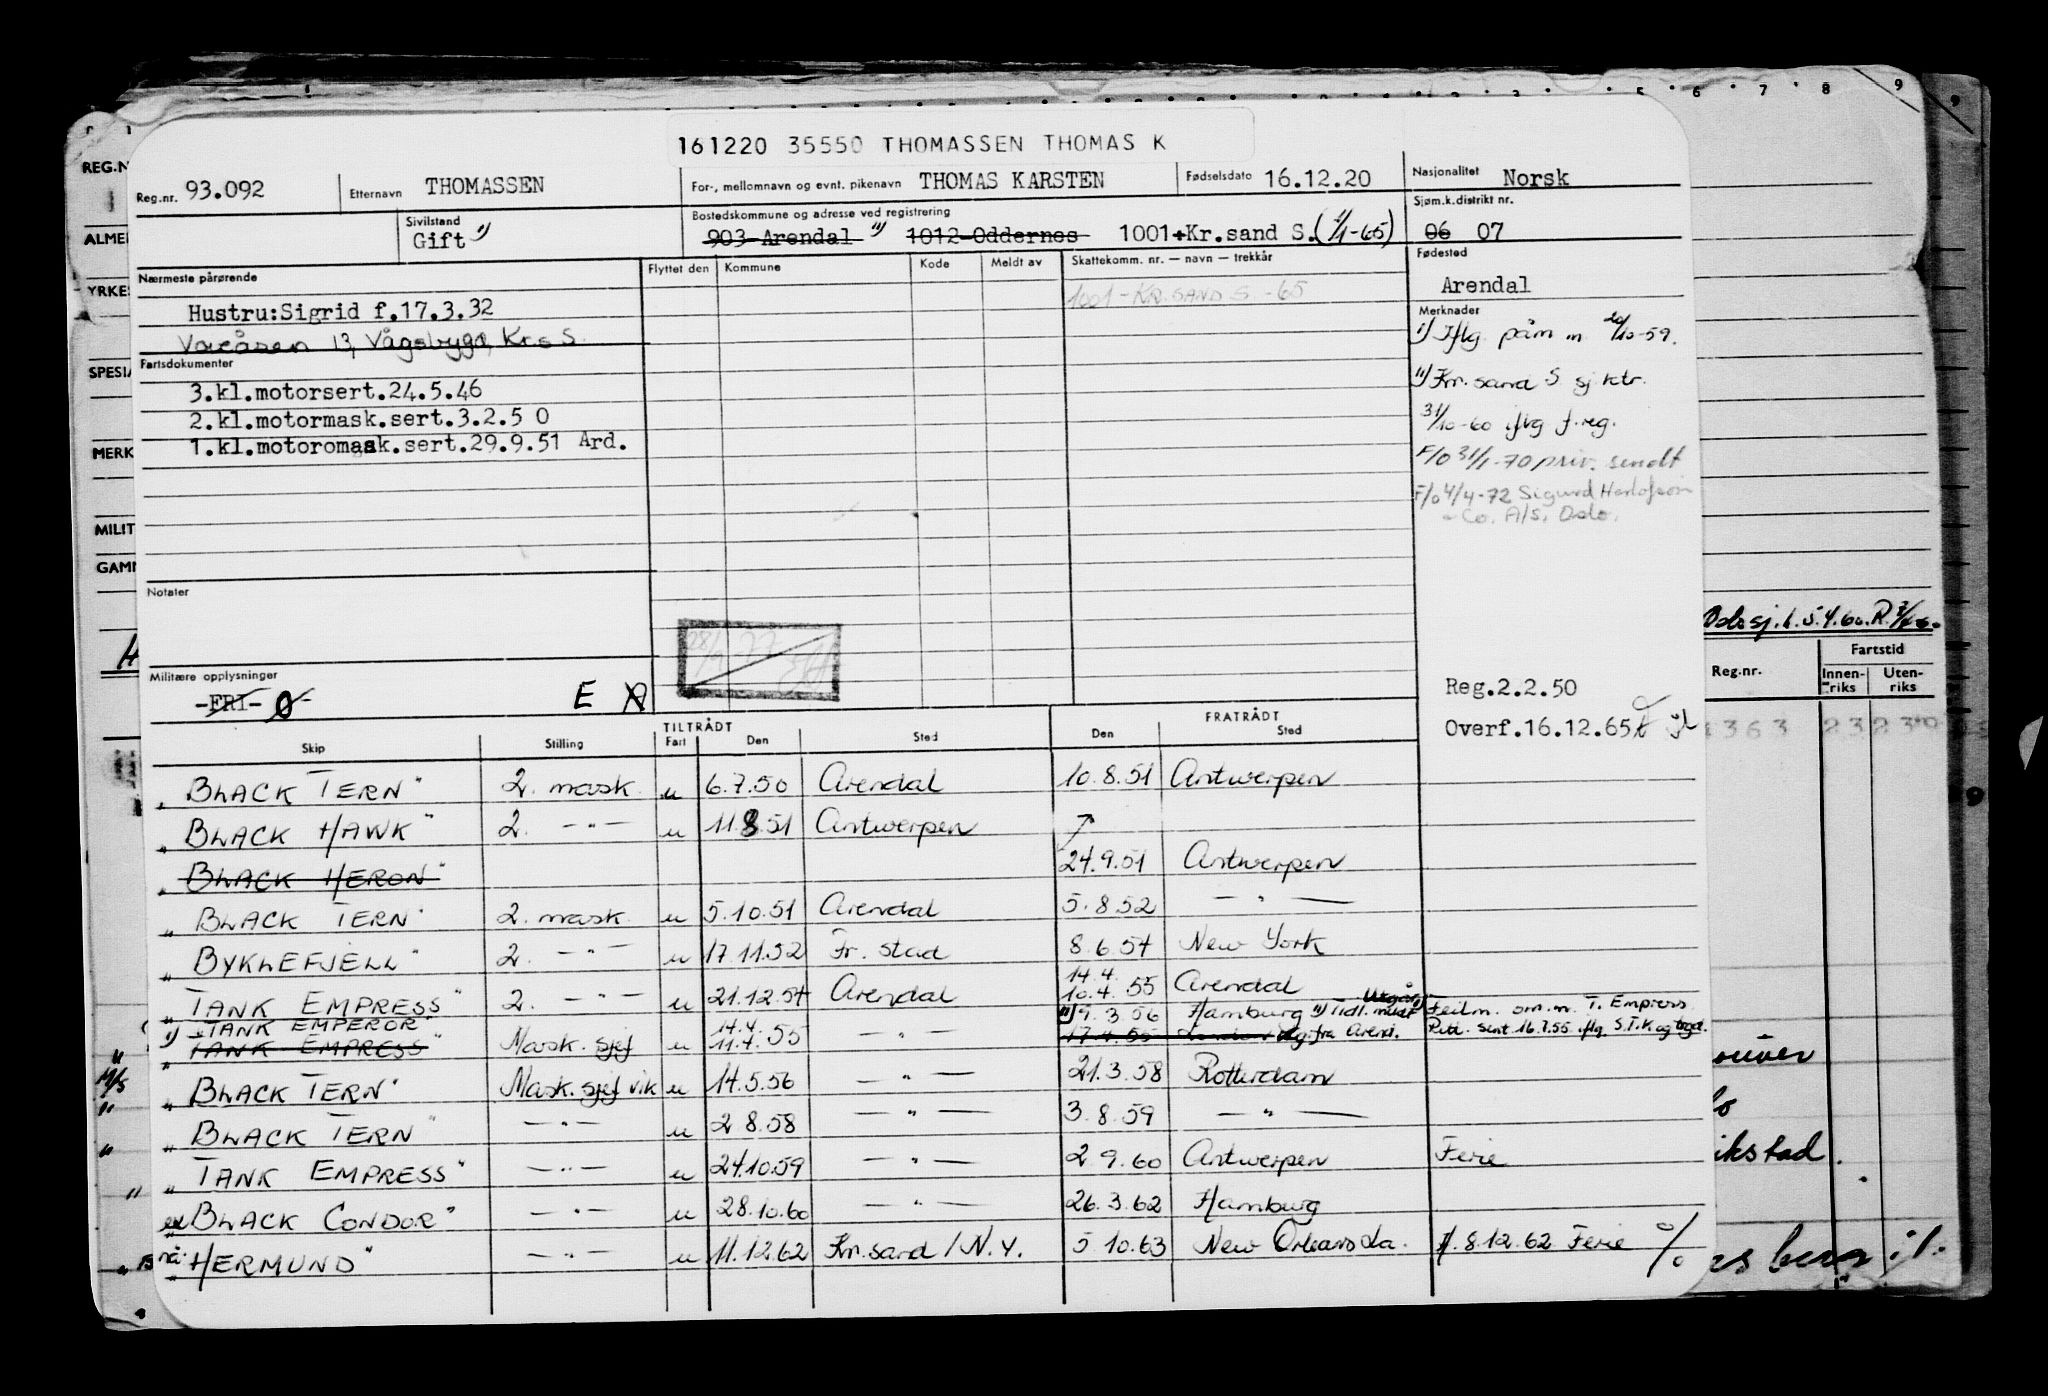 161220 35550 THOMASSEN THOMAS K
Reg.nr. 93.092 Etternavn THOMASSEN For-, mellomnavn og evnt. pikenavn THOMAS KARSTEN Fødselsdato 16.12.20 Nasjonalitet Norsk
Sivilstand Gift 1) Bostedskommune og adresse ved registrering 903 Arendal 11) 1012 Oddernes 1001 Kr.sand S. (1/1-65) Sjøm.k.distrikt nr. 06 07
Nærmeste pårørende Flyttet den Kommune Kode Meldt av Skattekomm. nr. — navn — trekkår Fødested
1001 - KR.SAND S -65 Arendal
Hustru:Sigrid f.17.3.32 Merknader
Voieåsen 13, Vågsbygd, Kr.s S. 1) Iflg påm m 20/10-59.
Fartsdokumenter
3.kl.motorsert.24.5.46 11) Kr. sand S sj ktr.
2.kl.motormask.sert.3.2.5 0 31/10-60 iflg f.reg.
1.kl.motoromask.sert.29.9.51 Ard.
F/O 31/1-70 priv. sendt
F/O 4/4-72 Sigurd Herlofson
& Co. A/S, Oslo.
Notater
Militære opplysninger
-FRI- Ø E A
Reg.2.2.50
Overf.16.12.65
TILTRÅDT FRATRÅDT
Skip Stilling Fart Den Sted Den Sted
"BLACK TERN" 2. mask. u 6.7.50 Arendal 10.8.51 Antwerpen
"BLACK HAWK" 2. —"— u 11.8.51 Antwerpen
"BLACK HERON" 24.9.51 Antwerpen
"BLACK TERN" 2. mask. u 5.10.51 Arendal 5.8.52 —"—
"BYKLEFJELL" 2. —"— u 17.11.52 Fr. stad 8.6.54 New York
"TANK EMPRESS" 2. —"— u 21.12.54 Arendal 14.4. 10.4. 55 Arendal
1) "TANK EMPEROR" 11) 9.3.56 Hamburg 11) Tidl. Utgår Feilm. om m. T. Empress
TANK EMPRESS" Mask. sjef u 14.4. 11.4. 55 —"— 17.4.55 fra Arend. 16.7.55 iflg. S.T.K og
"BLACK TERN" Mask. sjef vik u 14.5.56 —"— 21.3.58 Rotterdam
"BLACK TERN" —"— u 2.8.58 —"— 3.8.59 —"—
"TANK EMPRESS" —"— u 24.10.59 —"— 2.9.60 Antwerpen Ferie
ex BLACK CONDOR" —"— u 28.10.60 —"— 26.3.62 Hamburg
nå: HERMUND" —"— u 11.12.62 Kr.sand / N.Y. 5.10.63 New Orleans La. f. 8.12.62 Ferie %
REG.N
ALMEI
YRKES
SPESIA
MERK
MILIT
GAMN
Oslo sj.
Reg.nr. Fartstid
Innen-riks Uten-riks